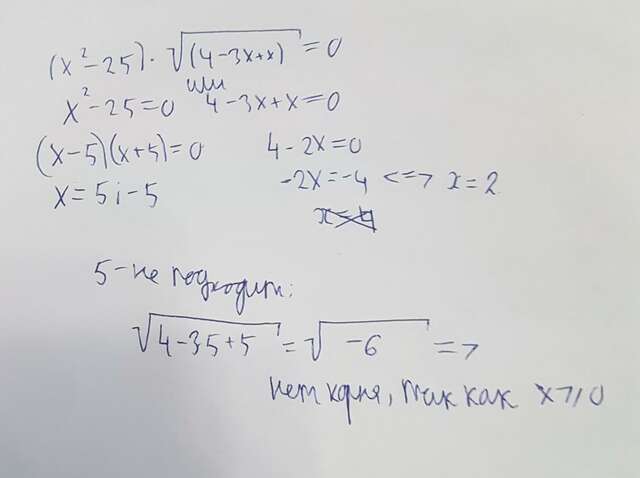 (x²-25)·√(4-3x+x) = 0
или
x²-25=0 4-3x+x=0
(x-5)(x+5)=0 4-2x=0
x=5; -5 -2x=-4 <=> x=2
5-не подходит:
√4-35+5 = √-6 =>
нет корня, так как x⩾0